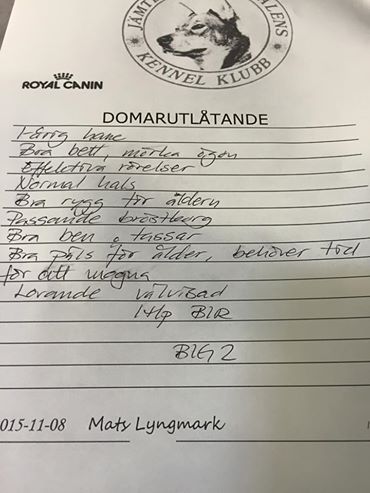 JÄMT ALENS
KENNEL KLUBB
ROYAL CANIN
DOMARUTLÅTANDE
hane
Bra bett, mörka ögon
Effektiva rörelser
Normal hals
Bra rygg för åldern
Passande bröstkorg
Bra ben o tassar
Bra päls för ålder, behöver tid
för att mogna
Lovande välvisad
1 Hp BIR
BIG 2
015-11-08 Mats Lyngmark